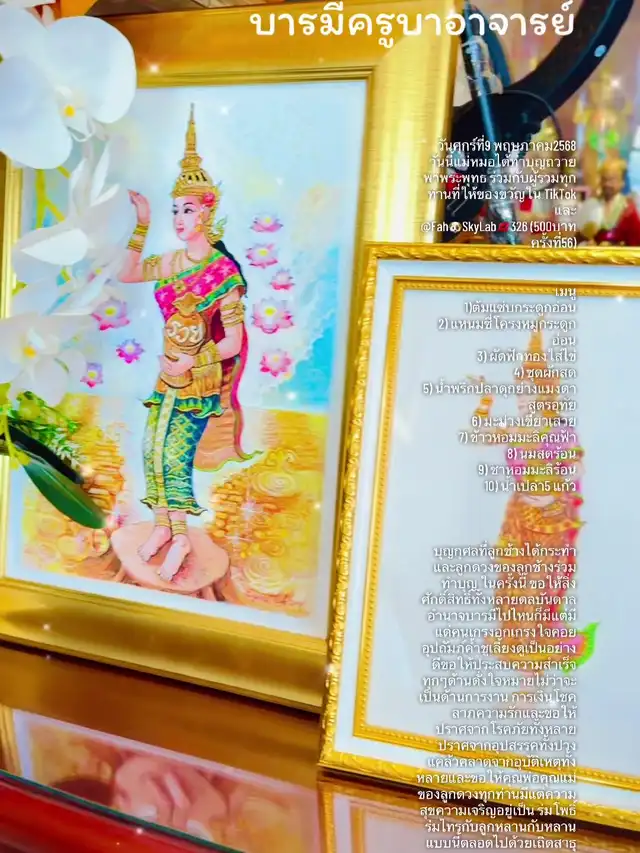 บารมีครูบาอาจารย์
วันศุกร์ที่9 พฤษภาคม2568
วันนี้แม่หมอได้ทำบุญถวาย
พาพระพุทธ ร่วมกับผู้รวมทุก
ท่านที่ให้ของขวัญใน TikTok
และ
@Fah SkyLab 326 (500บาท
ครั้งที่56)
เมนู
1)ต้มแซ่บกระดูกอ่อน
2) แหนมซี่โครงหมูกระดูก
อ่อน
3) ผัดฟักทองใส่ไข่
4) ชุดผักสด
5) น้ำพริกปลาดุกย่างแมงดา
สูตรอุทัย
6) มะม่วงเขียวเสวย
7) ข้าวหอมมะลิคุณฟ้า
8) นมสดร้อน
9) ชาหอมมะลิร้อน
10) น้ำเปล่า5 แก้ว
บุญกุศลที่ลูกช้างได้กระทำ
และลูกดวงของลูกช้างร่วม
ทำบุญ ในครั้งนี้ ขอให้สิ่ง
ศักดิ์สิทธิ์ทั้งหลายดลบันดาล
อำนาจบารมีไปไหนก็มีแต่มี
แต่คนเกรงอกเกรงใจคอย
อุปถัมภ์ค้ำชูเลี้ยงดูเป็นอย่าง
ดีขอให้ประสบความสำเร็จ
ทุกๆด้านดั่งใจหมายไม่ว่าจะ
เป็นด้านการงาน การเงินโชค
ลาภความรักและขอให้
ปราศจากโรคภัยทั้งหลาย
ปราศจากอุปสรรคทั้งปวง
แคล้วคลาดจากอุบัติเหตุทั้ง
หลายและขอให้คุณพ่อคุณแม่
ของลูกดวงทุกท่านมีแต่ความ
สุขความเจริญอยู่เป็น ร่มโพธิ์
ร่มไทรกับลูกหลานกับหลาน
แบบนี้ตลอดไปด้วยเถิดสาธุ
รวย